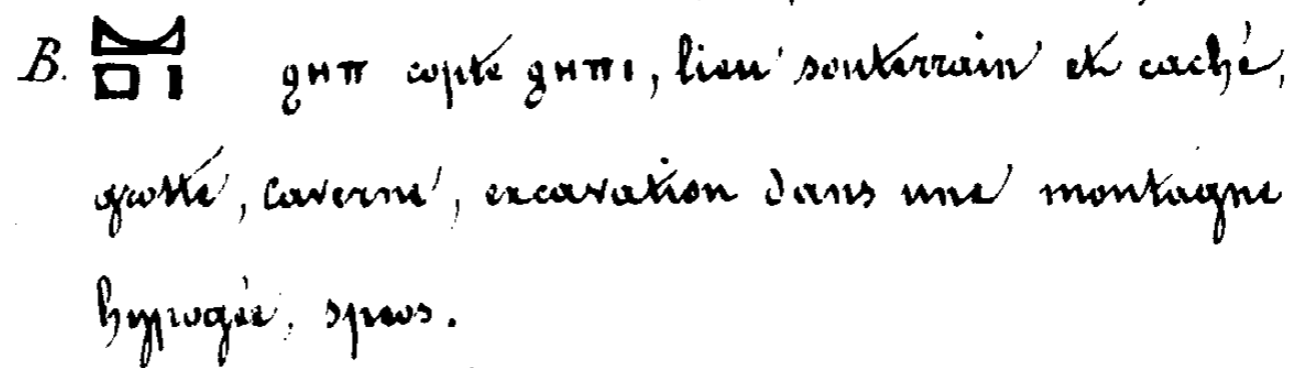 B. 𓊪𓏤 ϩⲏⲡ copte ϩⲏⲡⲓ, lieu souterrain et caché,
grotte, caverne, excavation dans une montagne
hypogée, speos.